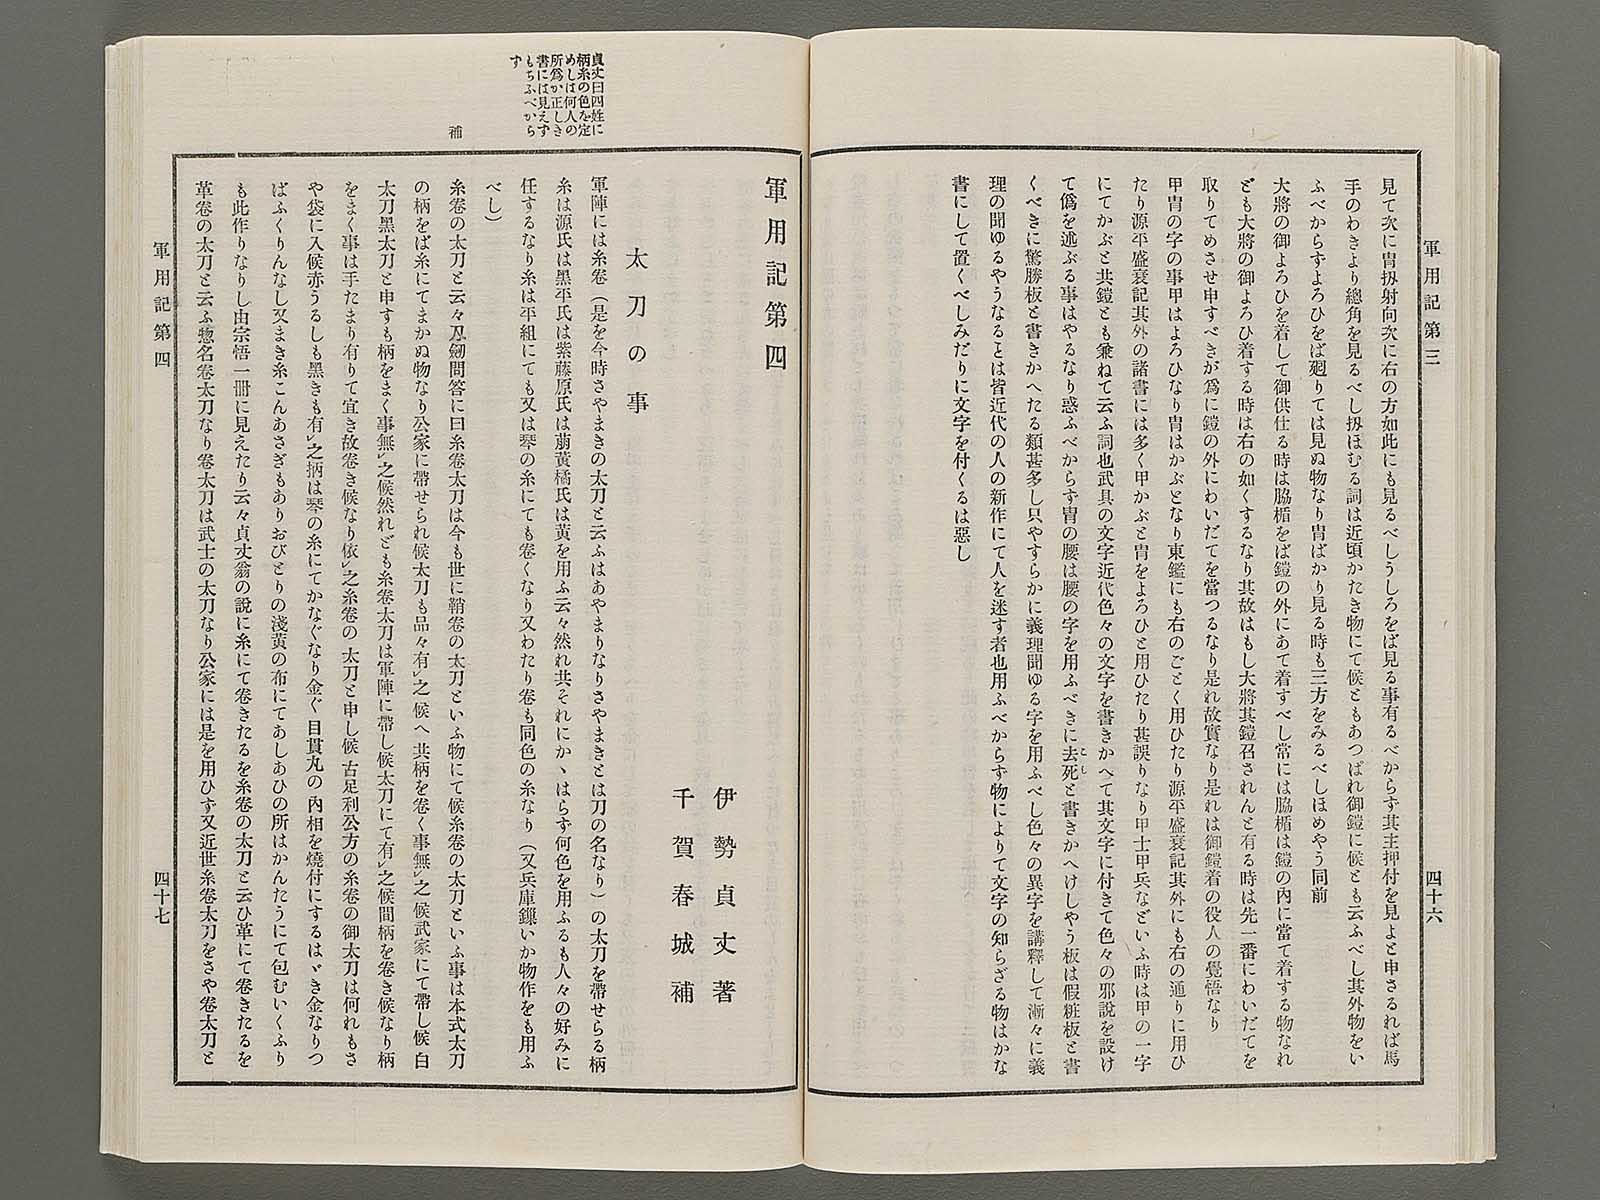 軍用記第三
四十六
見て次に冑扨射向次に右の方如此にも見るべしうしろをば見る事有るべからず其主押付を見よと申さるれば馬
手のわきより總角を見るべし扨ほむる詞は近頃かたき物にて候ともあつぱれ御鎧に候とも云ふべし其外物をい
ふべからずよろひをば廻りては見ぬ物なり冑ばかり見る時も三方をみるべしほめやう同前
大將の御よろひを着して御供仕る時は脇楯をば鎧の外にあて着すべし常には脇楯は鎧の內に當て着する物なれ
ども大將の御よろひ着する時は右の如くするなり其故はもし大將其鎧召されんと有る時は先一番にわいだてを
取りてめさせ申すべきが爲に鎧の外にわいだてを當つるなり是れ故實なり是れは御鎧着の役人の覺悟なり
甲冑の字の事甲はよろひなり冑はかぶとなり東鑑にも右のごとく用ひたり源平盛衰記其外にも右の通りに用ひ
たり源平盛衰記其外の諸書には多く甲かぶと冑をよろひと用ひたり甚誤りなり甲士甲兵などいふ時は甲の一字
にてかぶと共鎧とも兼ねて云ふ詞也武具の文字近代色々の文字を書きかへて其文字に付きて色々の邪說を設け
て僞を述ぶる事はやるなり惑ふべからず冑の腰は腰の字を用ふべきに去死と書きかへけしやう板は假粧板と書
くべきに驚勝板と書きかへたる類甚多し只やすらかに義理聞ゆる字を用ふべし色々の異字を講釋して漸々に義
理の聞ゆるやうなることは皆近代の人の新作にて人を迷す者也用ふべからず物によりて文字の知らざる物はかな
書にして置くべしみだりに文字を付くるは惡し
軍用記第四
伊勢貞丈著
千賀春城補
太刀の事
貞丈曰四姓に
柄糸の色を定
めしは何人の
所爲か正しき
書には見えず
もちふべから
ず
軍陣には糸卷（是を今時さやまきの太刀と云ふはあやまりなりさやまきとは刀の名なり）の太刀を帶せらる柄
糸は源氏は黑平氏は紫藤原氏は萠黃橘氏は黃を用ふ云々然れ共それにかゝはらず何色を用ふるも人々の好みに
任するなり糸は平組にても又は琴の糸にても卷くなり又わたり卷も同色の糸なり（又兵庫鏁いか物作をも用ふ
べし）
補
糸卷の太刀と云々刀劒問答に曰糸卷太刀は今も世に鞘卷の太刀といふ物にて候糸卷の太刀といふ事は本式太刀
の柄をば糸にてまかぬ物なり公家に帶せられ候太刀も品々有レ之候へ共柄を卷く事無レ之候武家にて帶し候白
太刀黑太刀と申すも柄をまく事無レ之候然れども糸卷太刀は軍陣に帶し候太刀にて有レ之候間柄を卷き候なり柄
をまく事は手たまり有りて宜き故卷き候なり依レ之糸卷の太刀と申し候古足利公方の糸卷の御太刀は何れもさ
や袋に入候赤うるしも黑きも有レ之抦は琴の糸にてかなぐなり金ぐ目貫丸の內相を燒付にするはゞき金なりつ
ばふくりんなし又まき糸こんあさぎもありおびとりの淺黃の布にてあしあひの所はかんたうにて包むいくふり
も此作りなりし由宗悟一冊に見えたり云々貞丈翁の說に糸にて卷きたるを糸卷の太刀と云ひ革にて卷きたるを
革卷の太刀と云ふ惣名卷太刀なり卷太刀は武士の太刀なり公家には是を用ひず又近世糸卷太刀をさや卷太刀と
軍用記第四
四十七